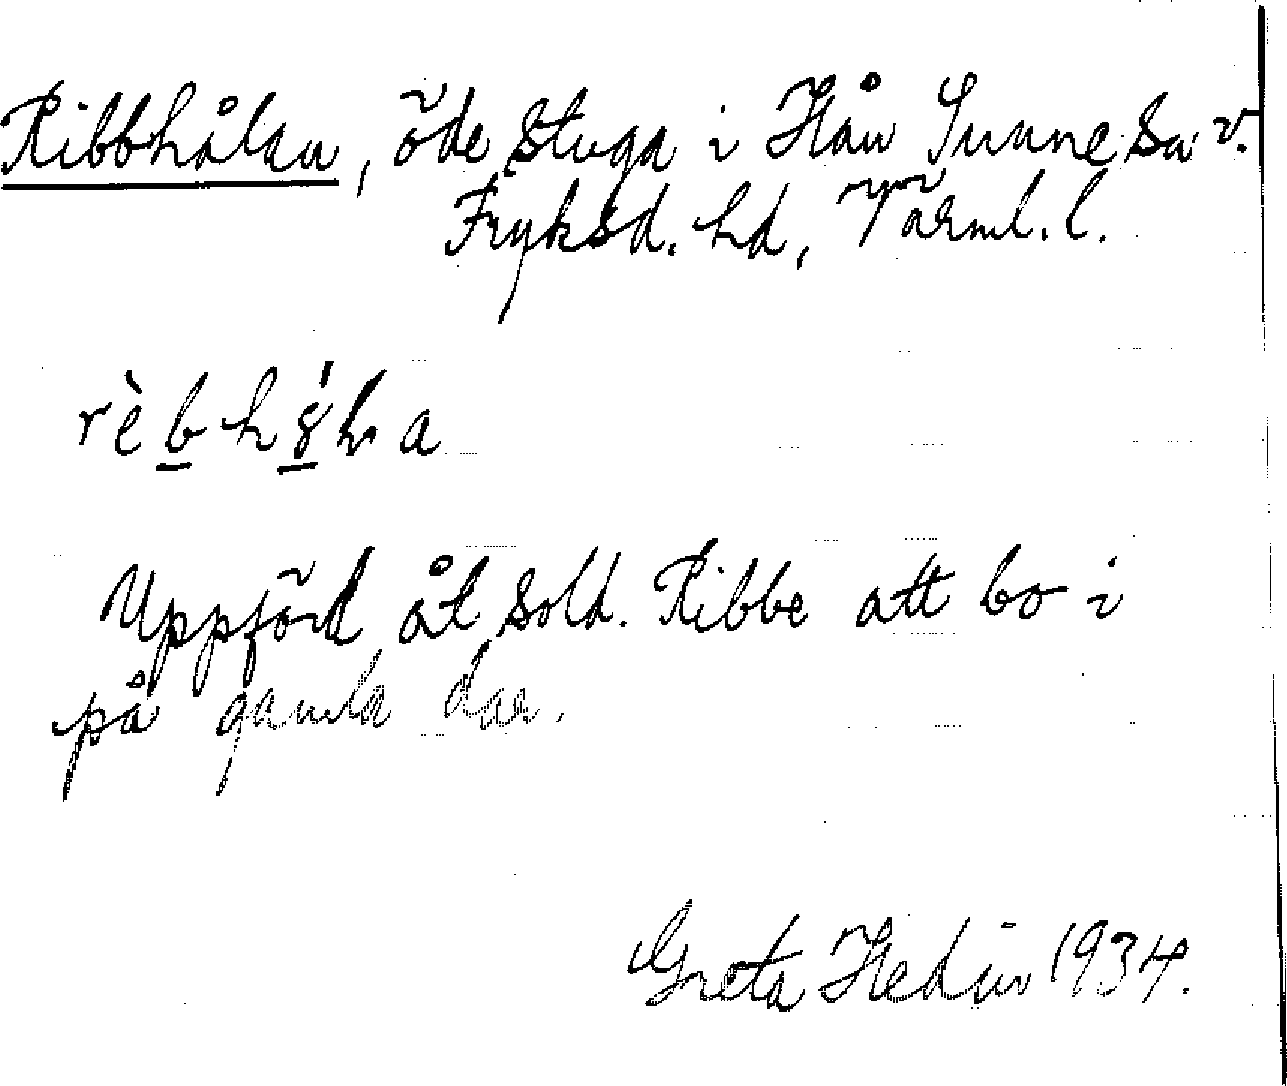 Ribbhålan, öde stuga i Hån Sunne sn v.
Fryksd. hd, Värml. l.
Uppförd åt sold. Ribbe att bo i
på gamla dar.
Greta Hedin 1934.